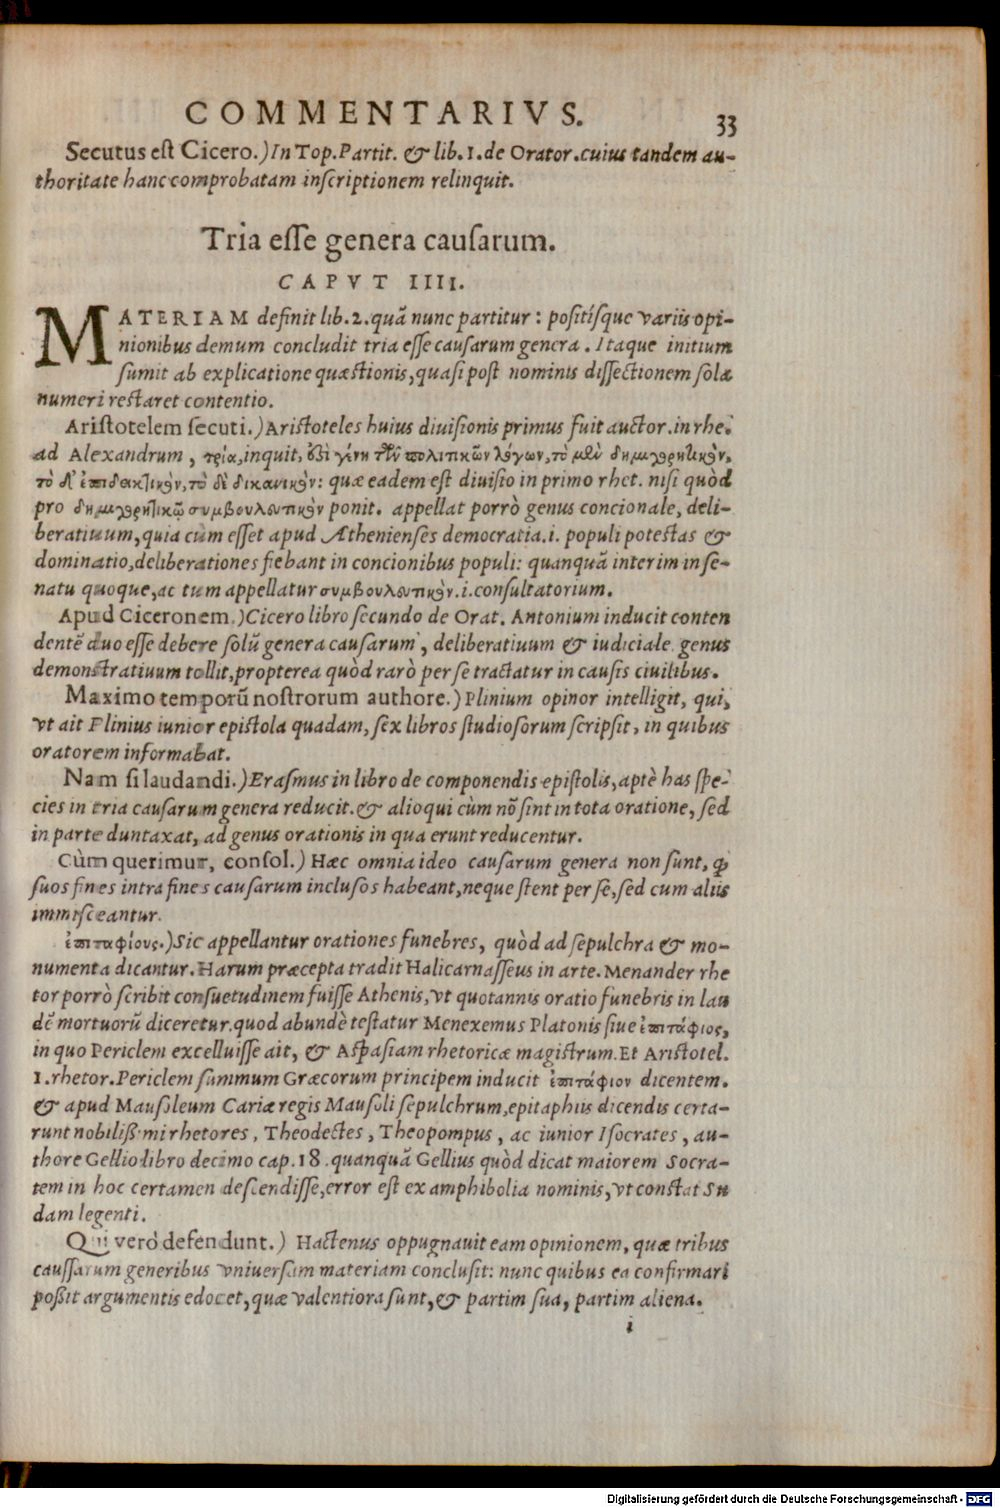 COMMENTARIVS. 33
Secutus est Cicero.) In Top. Partit. & lib. 1. de Orator. cuius tandem au-
thoritate hanc comprobatam inscriptionem relinquit.
Tria esse genera causarum.
CAPVT IIII.
MATERIAM definit lib. 2. quā nunc partitur: positisque variis opi-
nionibus demum concludit tria esse causarum genera. Itaque initium
sumit ab explicatione quæstionis, quasi post nominis dissectionem sola
numeri restaret contentio.
Aristotelem secuti.) Aristoteles huius diuisionis primus fuit auctor. in rhe.
ad Alexandrum, τρία, inquit, γένη τῶν πολιτικῶν λόγων, τὸ μὲν δημηγορικὸν,
τὸ δ' ἐπιδεικτικὸν, τὸ δὲ δικανικὸν: quæ eadem est diuisio in primo rhet. nisi quòd
pro δημηγορικῷ συμβουλευτικὸν ponit. appellat porrò genus concionale, deli-
beratiuum, quia cùm esset apud Athenienses democratia. i. populi potestas &
dominatio, deliberationes fiebant in concionibus populi: quanquā interim in se-
natu quoque, ac tum appellatur συμβουλευτικὸν. i. consultatorium.
Apud Ciceronem.) Cicero libro secundo de Orat. Antonium inducit conten
dentē duo esse debere solū genera causarum, deliberatiuum & iudiciale. genus
demonstratiuum tollit, propterea quòd rarò per se tractatur in causis ciuilibus.
Maximo temporū nostrorum authore.) Plinium opinor intelligit, qui,
vt ait Plinius iunior epistola quadam, sex libros studiosorum scripsit, in quibus
oratorem informabat.
Nam si laudandi.) Erasmus in libro de componendis epistolis, aptè has spe-
cies in tria causarum genera reducit. & alioqui cùm nō sint in tota oratione, sed
in parte duntaxat, ad genus orationis in qua erunt reducentur.
Cùm querimur, consol.) Hæc omnia ideo causarum genera non sunt, ꝙ
suos fines intra fines causarum inclusos habeant, neque stent per se, sed cum aliis
immisceantur.
ἐπιταφίους.) Sic appellantur orationes funebres, quòd ad sepulchra & mo-
numenta dicantur. Harum præcepta tradit Halicarnasseus in arte. Menander rhe
tor porrò scribit consuetudinem fuisse Athenis, vt quotannis oratio funebris in lau
dē mortuorū diceretur. quod abundè testatur Menexemus Platonis siue ἐπιτάφιος,
in quo Periclem excelluisse ait, & Aspasiam rhetoricæ magistrum. Et Aristotel.
1. rhetor. Periclem summum Græcorum principem inducit ἐπιτάφιον dicentem.
& apud Mausoleum Cariæ regis Mausoli sepulchrum, epitaphiis dicendis certa-
runt nobilißimi rhetores, Theodectes, Theopompus, ac iunior Isocrates, au-
thore Gellio libro decimo cap. 18. quanquā Gellius quòd dicat maiorem Socra-
tem in hoc certamen descendisse, error est ex amphibolia nominis, vt constat Sui
dam legenti.
Qui verò defendunt.) Hactenus oppugnauit eam opinionem, quæ tribus
caussarum generibus vniuersam materiam conclusit: nunc quibus ea confirmari
poßit argumentis edocet, quæ valentiora sunt, & partim sua, partim aliena.
i
Digitalisierung gefördert durch die Deutsche Forschungsgemeinschaft - DFG